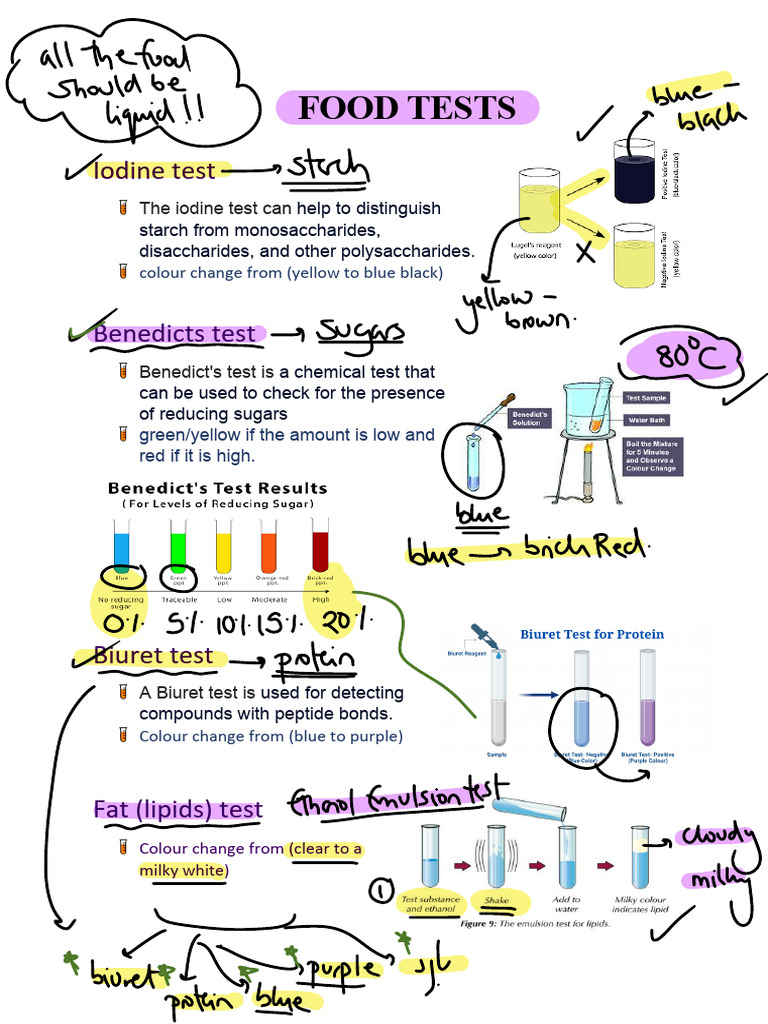 all the food
should be
liquid!!
FOOD TESTS
blue -
black
Iodine test
starch
The iodine test can help to distinguish
starch from monosaccharides,
disaccharides, and other polysaccharides.
colour change from (yellow to blue black)
Lugol's reagent
(yellow color)
Positive Iodine Test
(blue-black color)
Negative Iodine Test
(yellow color)
x
yellow -
brown.
Benedicts test
sugars
80°C
Benedict's test is a chemical test that
can be used to check for the presence
of reducing sugars
green/yellow if the amount is low and
red if it is high.
Benedict's
Solution
Test Sample
Water Bath
Boil the Mixture
for 5 Minutes
and Observe a
Colour Change
blue
blue → brick Red.
Benedict's Test Results
(For Levels of Reducing Sugar)
Blue
Green
ppt.
Yellow
ppt.
Orange-red
ppt.
Brick-red
ppt.
No reducing
sugar
Traceable
Low
Moderate
High
0% 5% 10% 15% 20%.
Biuret test
protein
A Biuret test is used for detecting
compounds with peptide bonds.
Colour change from (blue to purple)
Biuret Test for Protein
Biuret Reagent
Sample
Biuret Test- Negative
(Blue Color)
Biuret Test- Positive
(Purple Colour)
Fat (lipids) test
Ethanol Emulsion test
Colour change from (clear to a
milky white)
1
Test substance
and ethanol
Shake
Add to
water
Milky colour
indicates lipid
cloudy
milky
Figure 9: The emulsion test for lipids.
biuret
protein
blue
purple